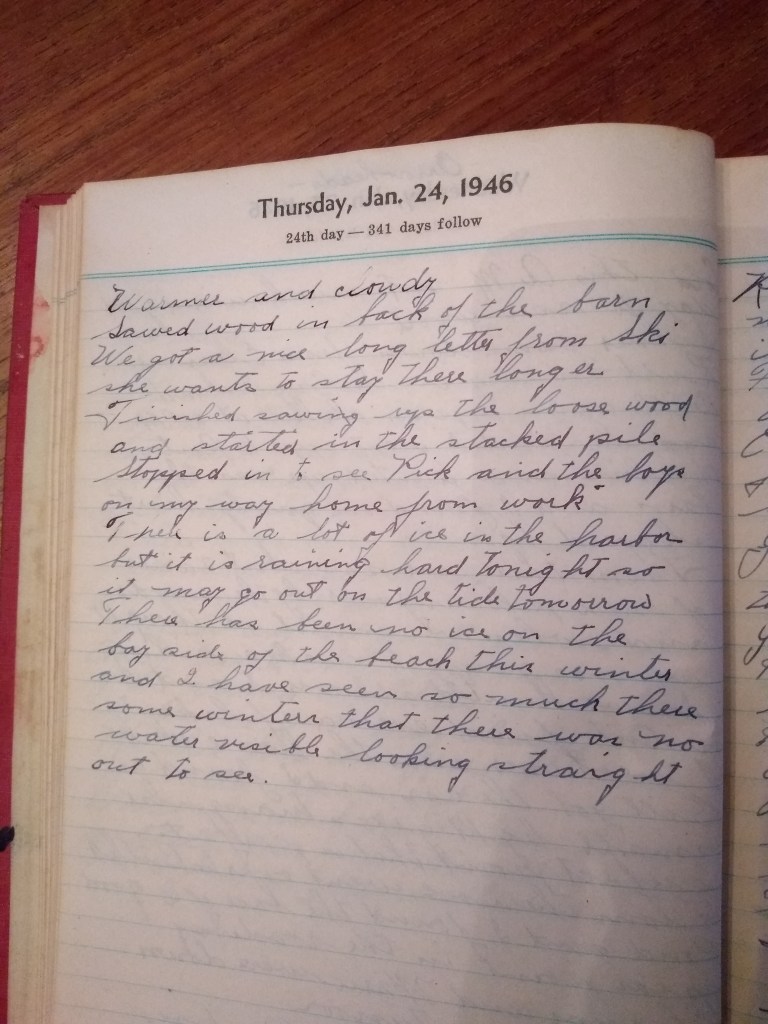 Thursday, Jan. 24, 1946
24th day — 341 days follow
Warmer and cloudy
Sawed wood in back of the barn
We got a nice long letter from Ski
she wants to stay there longer
Finished sawing up the loose wood
and started in the stacked pile
Stopped in to see Pick and the boys
on my way home from work
There is a lot of ice in the harbor
but it is raining hard tonight so
it may go out on the tide tomorrow
There has been no ice on the
bay side of the beach this winter
and I have seen so much there
some winters that there was no
water visible looking straight
out to sea.